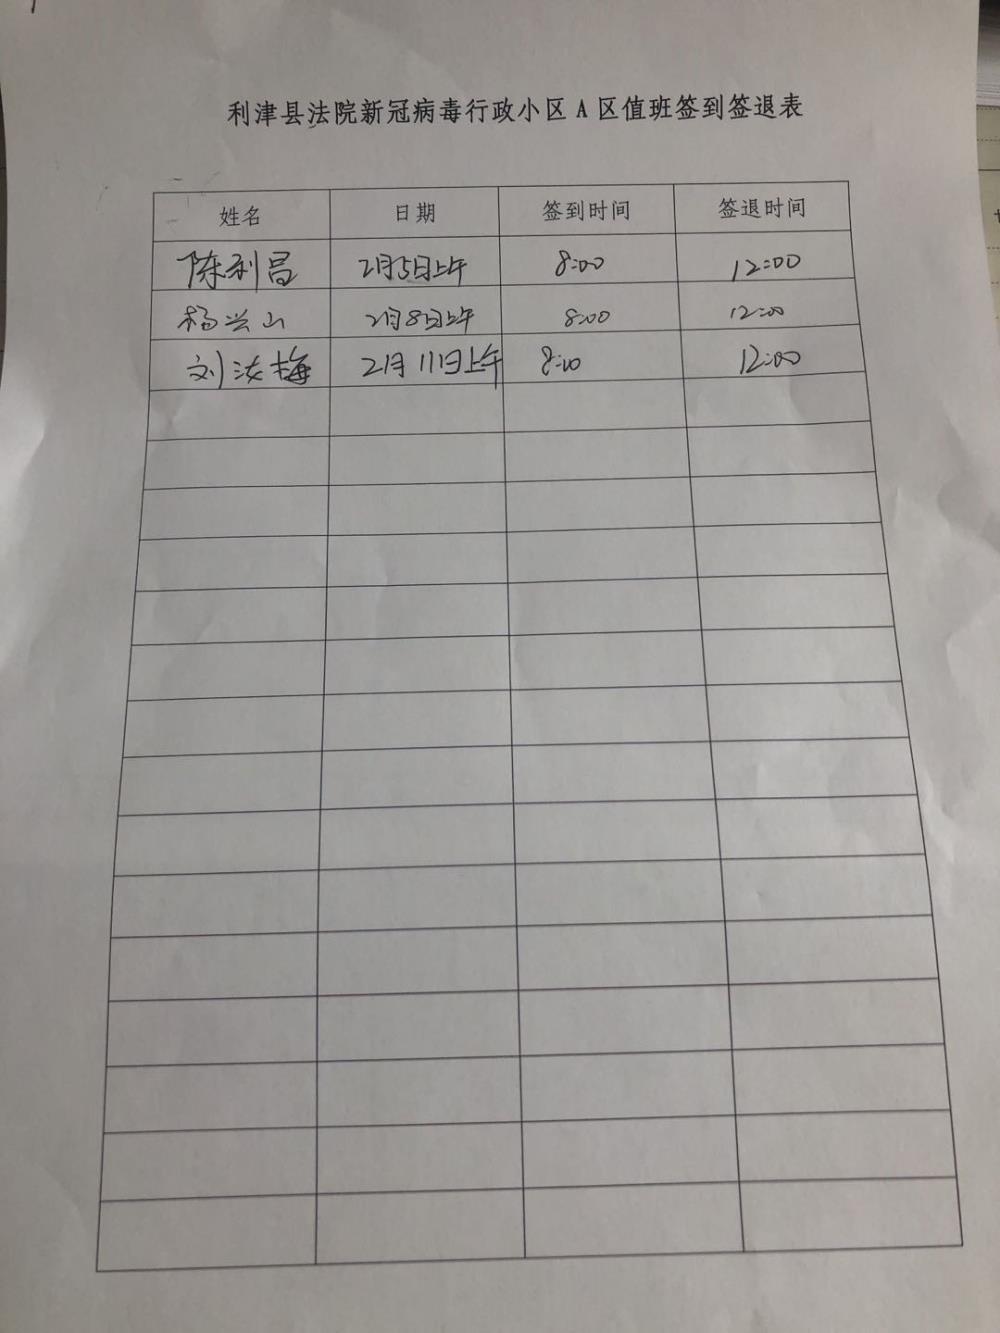 利津县法院新冠病毒行政小区 A 区值班签到签退表
姓名 日期 签到时间 签退时间
陈利昌 2月5日上午 8:00 12:00
杨兴山 2月8日上午 8:00 12:00
刘汝梅 2月11日上午 8:00 12:00